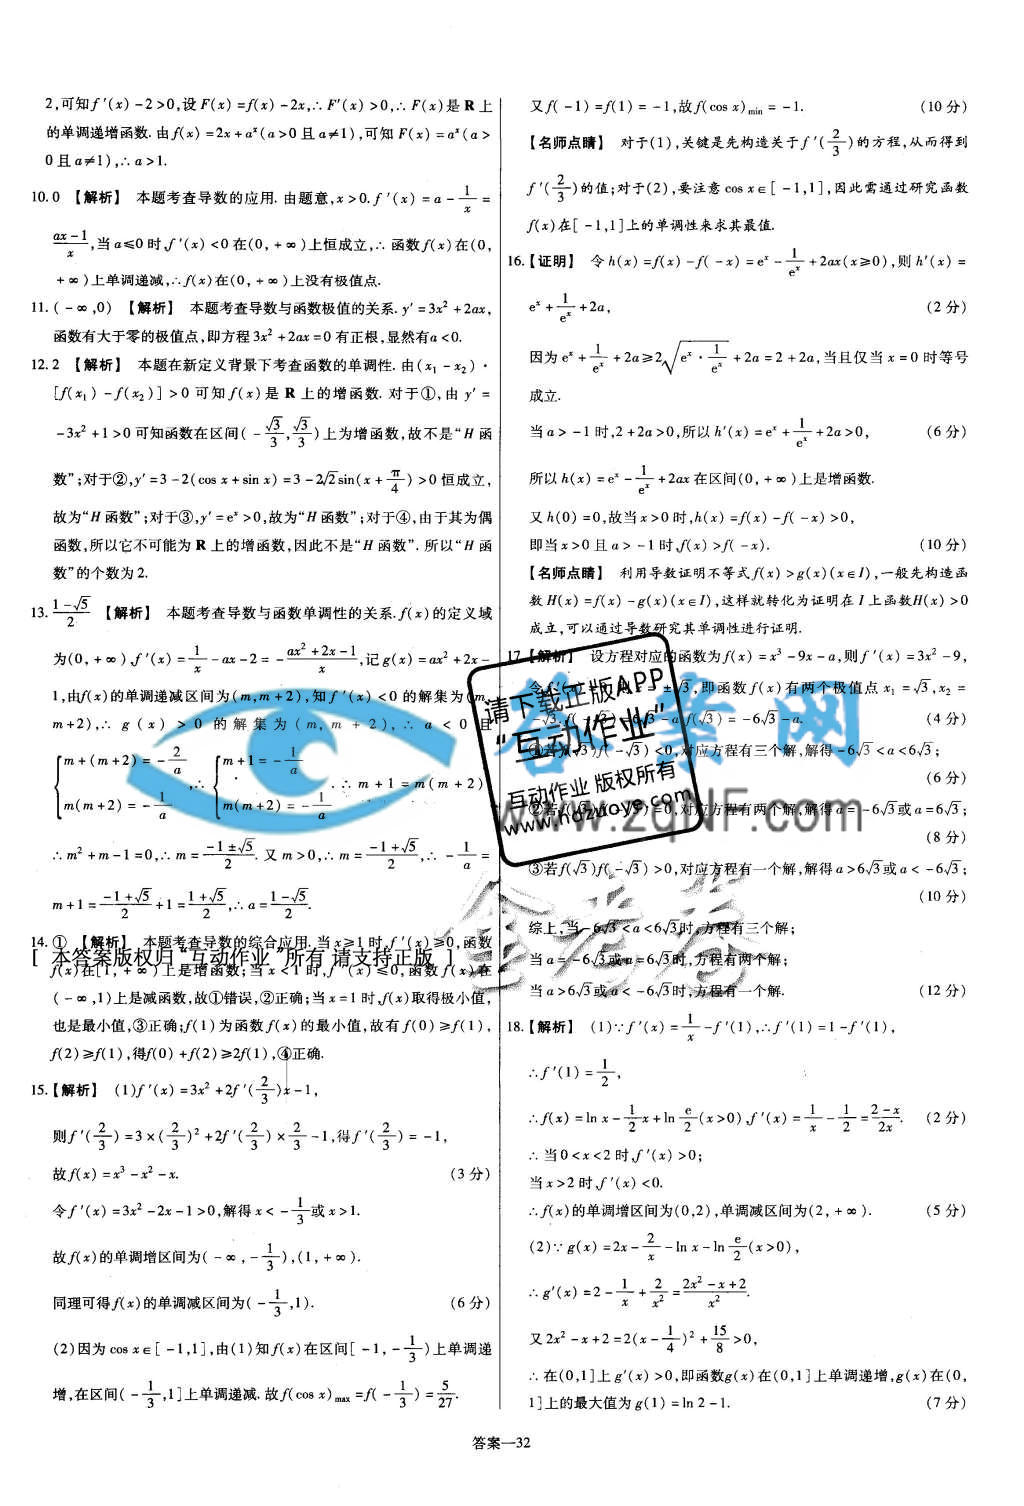 2,可知f′(x)-2>0,设F(x)=f(x)-2x,∴F′(x)>0,∴F(x)是R上
的单调递增函数.由f(x)=2x+aˣ(a>0且a≠1),可知F(x)=aˣ(a>
0且a≠1),∴a>1.
10.0 【解析】 本题考查导数的应用.由题意,x>0.f′(x)=a-1/x=
(ax-1)/x,当a≤0时,f′(x)<0在(0,+∞)上恒成立,∴函数f(x)在(0,
+∞)上单调递减,∴f(x)在(0,+∞)上没有极值点.
11.(-∞,0) 【解析】 本题考查导数与函数极值的关系.y′=3x²+2ax,
函数有大于零的极值点,即方程3x²+2ax=0有正根,显然有a<0.
12.2 【解析】 本题在新定义背景下考查函数的单调性.由(x₁-x₂)·
[f(x₁)-f(x₂)]>0可知f(x)是R上的增函数.对于①,由y′=
-3x²+1>0可知函数在区间(-√3/3,√3/3)上为增函数,故不是“H函
数”;对于②,y′=3-2(cos x+sin x)=3-2√2sin(x+π/4)>0恒成立,
故为“H函数”;对于③,y′=eˣ>0,故为“H函数”;对于④,由于其为偶
函数,所以它不可能为R上的增函数,因此不是“H函数”.所以“H函
数”的个数为2.
13.(1-√5)/2 【解析】 本题考查导数与函数单调性的关系.f(x)的定义域
为(0,+∞),f′(x)=1/x-ax-2=-(ax²+2x-1)/x,记g(x)=ax²+2x-
1,由f(x)的单调递减区间为(m,m+2),知f′(x)<0的解集为(m,
m+2),∴g(x)>0的解集为(m,m+2),∴a<0且
{m+(m+2)=-2/a, m(m+2)=-1/a ∴{m+1=-1/a, m(m+2)=-1/a ∴m+1=m(m+2)
∴m²+m-1=0,∴m=(-1±√5)/2.又m>0,∴m=(-1+√5)/2,∴-1/a=
m+1=(-1+√5)/2+1=(1+√5)/2,∴a=(1-√5)/2.
14.① 【解析】 本题考查导数的综合应用.当x≥1时,f′(x)≥0,函数
[ 本答案版权归“互动作业”所有 请支持正版 ]
f(x)在[1,+∞)上是增函数;当x<1时,f′(x)≤0,函数f(x)在
(-∞,1)上是减函数,故①错误,②正确;当x=1时,f(x)取得极小值,
也是最小值,③正确;f(1)为函数f(x)的最小值,故有f(0)≥f(1),
f(2)≥f(1),得f(0)+f(2)≥2f(1),④正确.
15.【解析】 (1)f′(x)=3x²+2f′(2/3)x-1,
则f′(2/3)=3×(2/3)²+2f′(2/3)×2/3-1,得f′(2/3)=-1,
故f(x)=x³-x²-x. (3分)
令f′(x)=3x²-2x-1>0,解得x<-1/3或x>1.
故f(x)的单调增区间为(-∞,-1/3),(1,+∞).
同理可得f(x)的单调减区间为(-1/3,1). (6分)
(2)因为cos x∈[-1,1],由(1)知f(x)在区间[-1,-1/3)上单调递
增,在区间(-1/3,1]上单调递减.故f(cos x)max=f(-1/3)=5/27.
又f(-1)=f(1)=-1,故f(cos x)min=-1. (10分)
【名师点睛】 对于(1),关键是先构造关于f′(2/3)的方程,从而得到
f′(2/3)的值;对于(2),要注意cos x∈[-1,1],因此需通过研究函数
f(x)在[-1,1]上的单调性来求其最值.
16.【证明】 令h(x)=f(x)-f(-x)=eˣ-1/eˣ+2ax(x≥0),则h′(x)=
eˣ+1/eˣ+2a, (2分)
因为eˣ+1/eˣ+2a≥2√(eˣ·1/eˣ)+2a=2+2a,当且仅当x=0时等号
成立.
当a>-1时,2+2a>0,所以h′(x)=eˣ+1/eˣ+2a>0, (6分)
所以h(x)=eˣ-1/eˣ+2ax在区间(0,+∞)上是增函数.
又h(0)=0,故当x>0时,h(x)=f(x)-f(-x)>0,
即当x>0且a>-1时,f(x)>f(-x). (10分)
【名师点睛】 利用导数证明不等式f(x)>g(x)(x∈I),一般先构造函
数H(x)=f(x)-g(x)(x∈I),这样就转化为证明在I上函数H(x)>0
成立,可以通过导数研究其单调性进行证明.
17.【解析】 设方程对应的函数为f(x)=x³-9x-a,则f′(x)=3x²-9,
令f′(x)=0,得x=±√3,即函数f(x)有两个极值点x₁=√3,x₂=
-√3,f(-√3)=6√3-a,f(√3)=-6√3-a. (4分)
①若f(√3)f(-√3)<0,对应方程有三个解,解得-6√3<a<6√3;
(6分)
②若f(√3)f(-√3)=0,对应方程有两个解,解得a=-6√3或a=6√3;
(8分)
③若f(√3)f(-√3)>0,对应方程有一个解,解得a>6√3或a<-6√3;
(10分)
综上,当-6√3<a<6√3时,方程有三个解;
当a=-6√3或a=6√3时,方程有两个解;
当a>6√3或a<-6√3时,方程有一个解. (12分)
18.【解析】 (1)∵f′(x)=1/x-f′(1),∴f′(1)=1-f′(1),
∴f′(1)=1/2,
∴f(x)=ln x-1/2x+ln e/2(x>0),f′(x)=1/x-1/2=(2-x)/2x. (2分)
∴当0<x<2时,f′(x)>0;
当x>2时,f′(x)<0.
∴f(x)的单调增区间为(0,2),单调减区间为(2,+∞). (5分)
(2)∵g(x)=2x-2/x-ln x-ln e/2(x>0),
∴g′(x)=2-1/x+2/x²=(2x²-x+2)/x².
又2x²-x+2=2(x-1/4)²+15/8>0,
∴在(0,1]上g′(x)>0,即函数g(x)在(0,1]上单调递增,g(x)在(0,
1]上的最大值为g(1)=ln 2-1. (7分)
请下载正版APP
“互动作业”
互动作业 版权所有
www.hdzuoye.com
答案网
www.zqNF.com
金考卷
答案—32